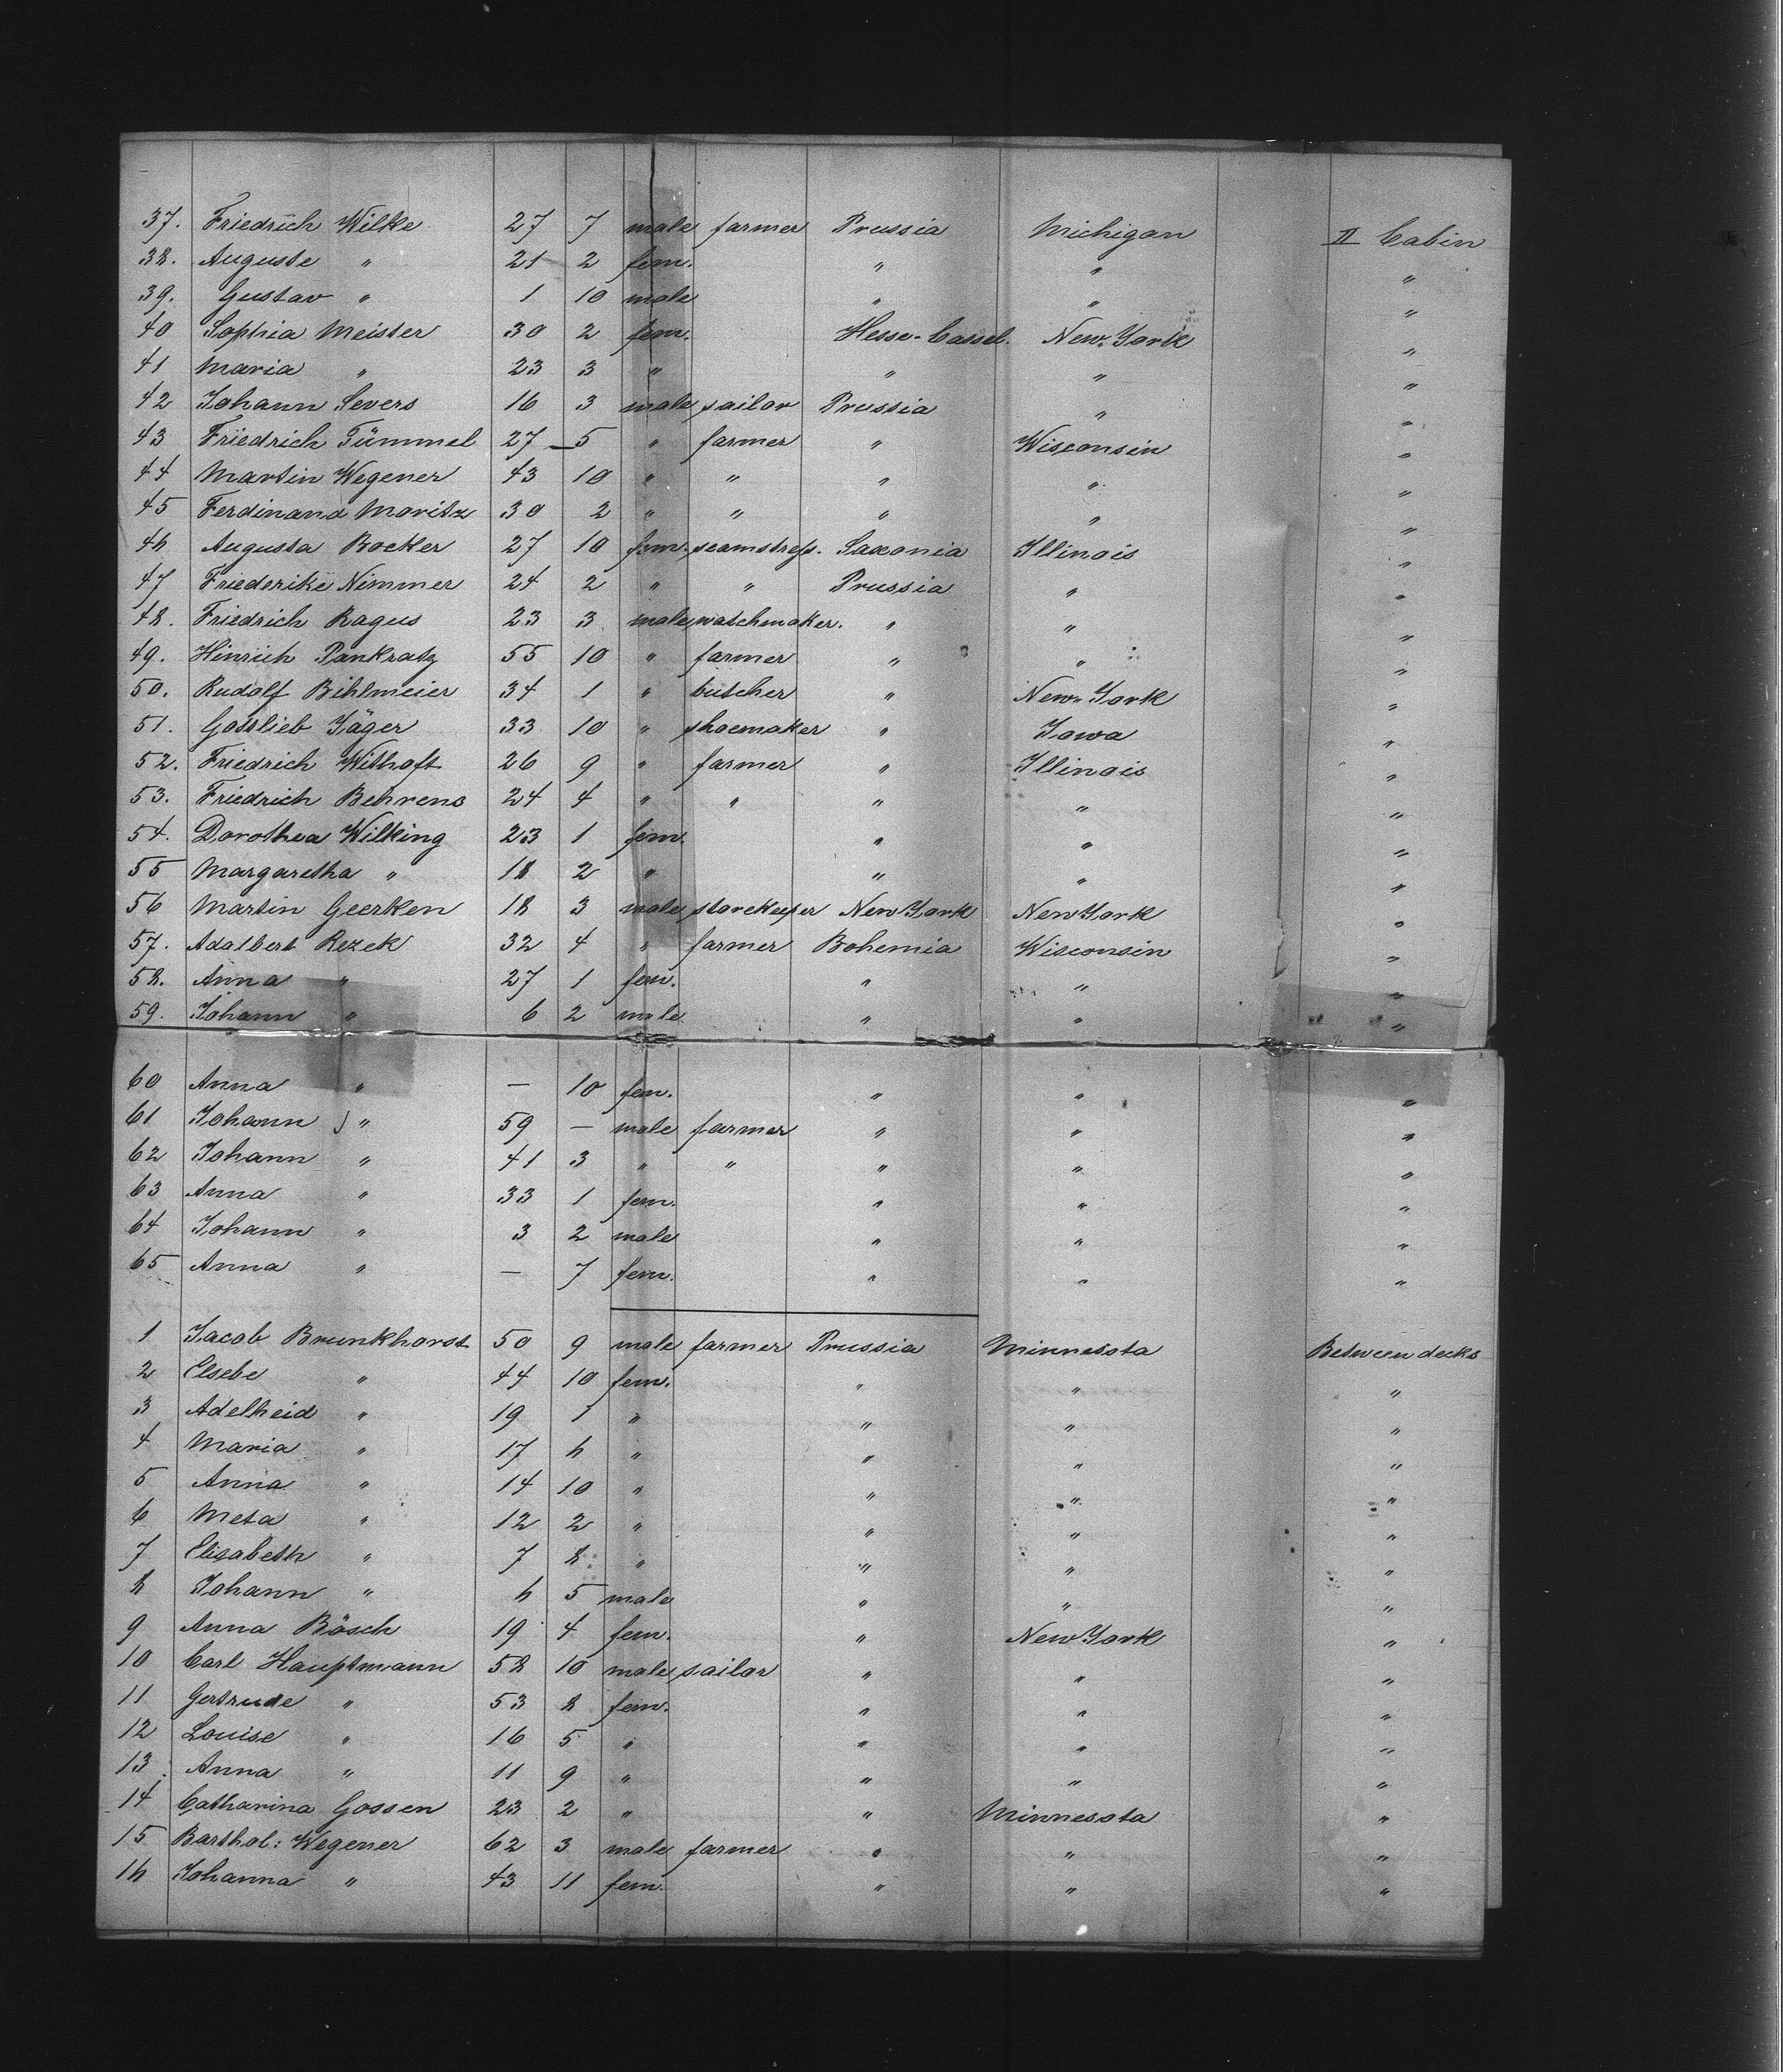 37. Friedrich Wilke 27 7 male farmer Prussia Michigan II Cabin
38. Auguste " 21 2 fem. " " "
39. Gustav " 1 10 male " " "
40 Sophia Meister 30 2 fem. Hesse-Cassel. New-York "
41 Maria " 23 3 " " " "
42 Johann Severs 16 3 male sailor Prussia " "
43 Friedrich Tümmel 27 5 " farmer " Wisconsin "
44 Martin Wegener 43 10 " " " " "
45 Ferdinand Moritz 30 2 " " " " "
46 Augusta Bocker 27 10 fem. seamstress. Saxonia Illinois "
47 Friederike Nimmer 24 2 " " Prussia " "
48. Friedrich Ragus 23 3 male watchmaker. " " "
49. Hinrich Pankratz 55 10 " farmer " " "
50. Rudolf Bihlmeier 34 1 " butcher " New-York "
51. Gottlieb Jäger 33 10 " shoemaker " Iowa "
52. Friedrich Withoft 26 9 " farmer " Illinois "
53. Friedrich Behrens 24 4 " " " " "
54. Dorothea Wilking 23 1 fem. " " "
55 Margaretha " 18 2 " " " "
56 Martin Geerken 18 3 male storekeeper New York New York "
57. Adalbert Rezek 32 4 " farmer Bohemia Wisconsin "
58. Anna " 27 1 fem. " " "
59. Johann " 6 2 male " " "
60 Anna " — 10 fem. " " "
61 Johann " 59 — male farmer " " "
62 Johann " 41 3 " " " " "
63 Anna " 33 1 fem. " " "
64 Johann " 3 2 male " " "
65 Anna " — 7 fem. " " "
1 Jacob Brunkhorst 50 9 male farmer Prussia Minnesota Between decks
2 Elsebe " 44 10 fem. " " "
3 Adelheid " 19 1 " " " "
4 Maria " 17 6 " " " "
5 Anna " 14 10 " " " "
6 Meta " 12 2 " " " "
7 Elisabeth " 7 8 " " " "
8 Johann " 6 5 male " " "
9 Anna Bösch 19 4 fem. " New York "
10 Carl Hauptmann 58 10 male sailor " " "
11 Gertrude " 53 8 fem. " " "
12 Louise " 16 5 " " " "
13. Anna " 11 9 " " " "
14 Catharina Gossen 23 2 " " Minnesota "
15 Barthol: Wegener 62 3 male farmer " " "
16 Johanna " 43 11 fem. " " "